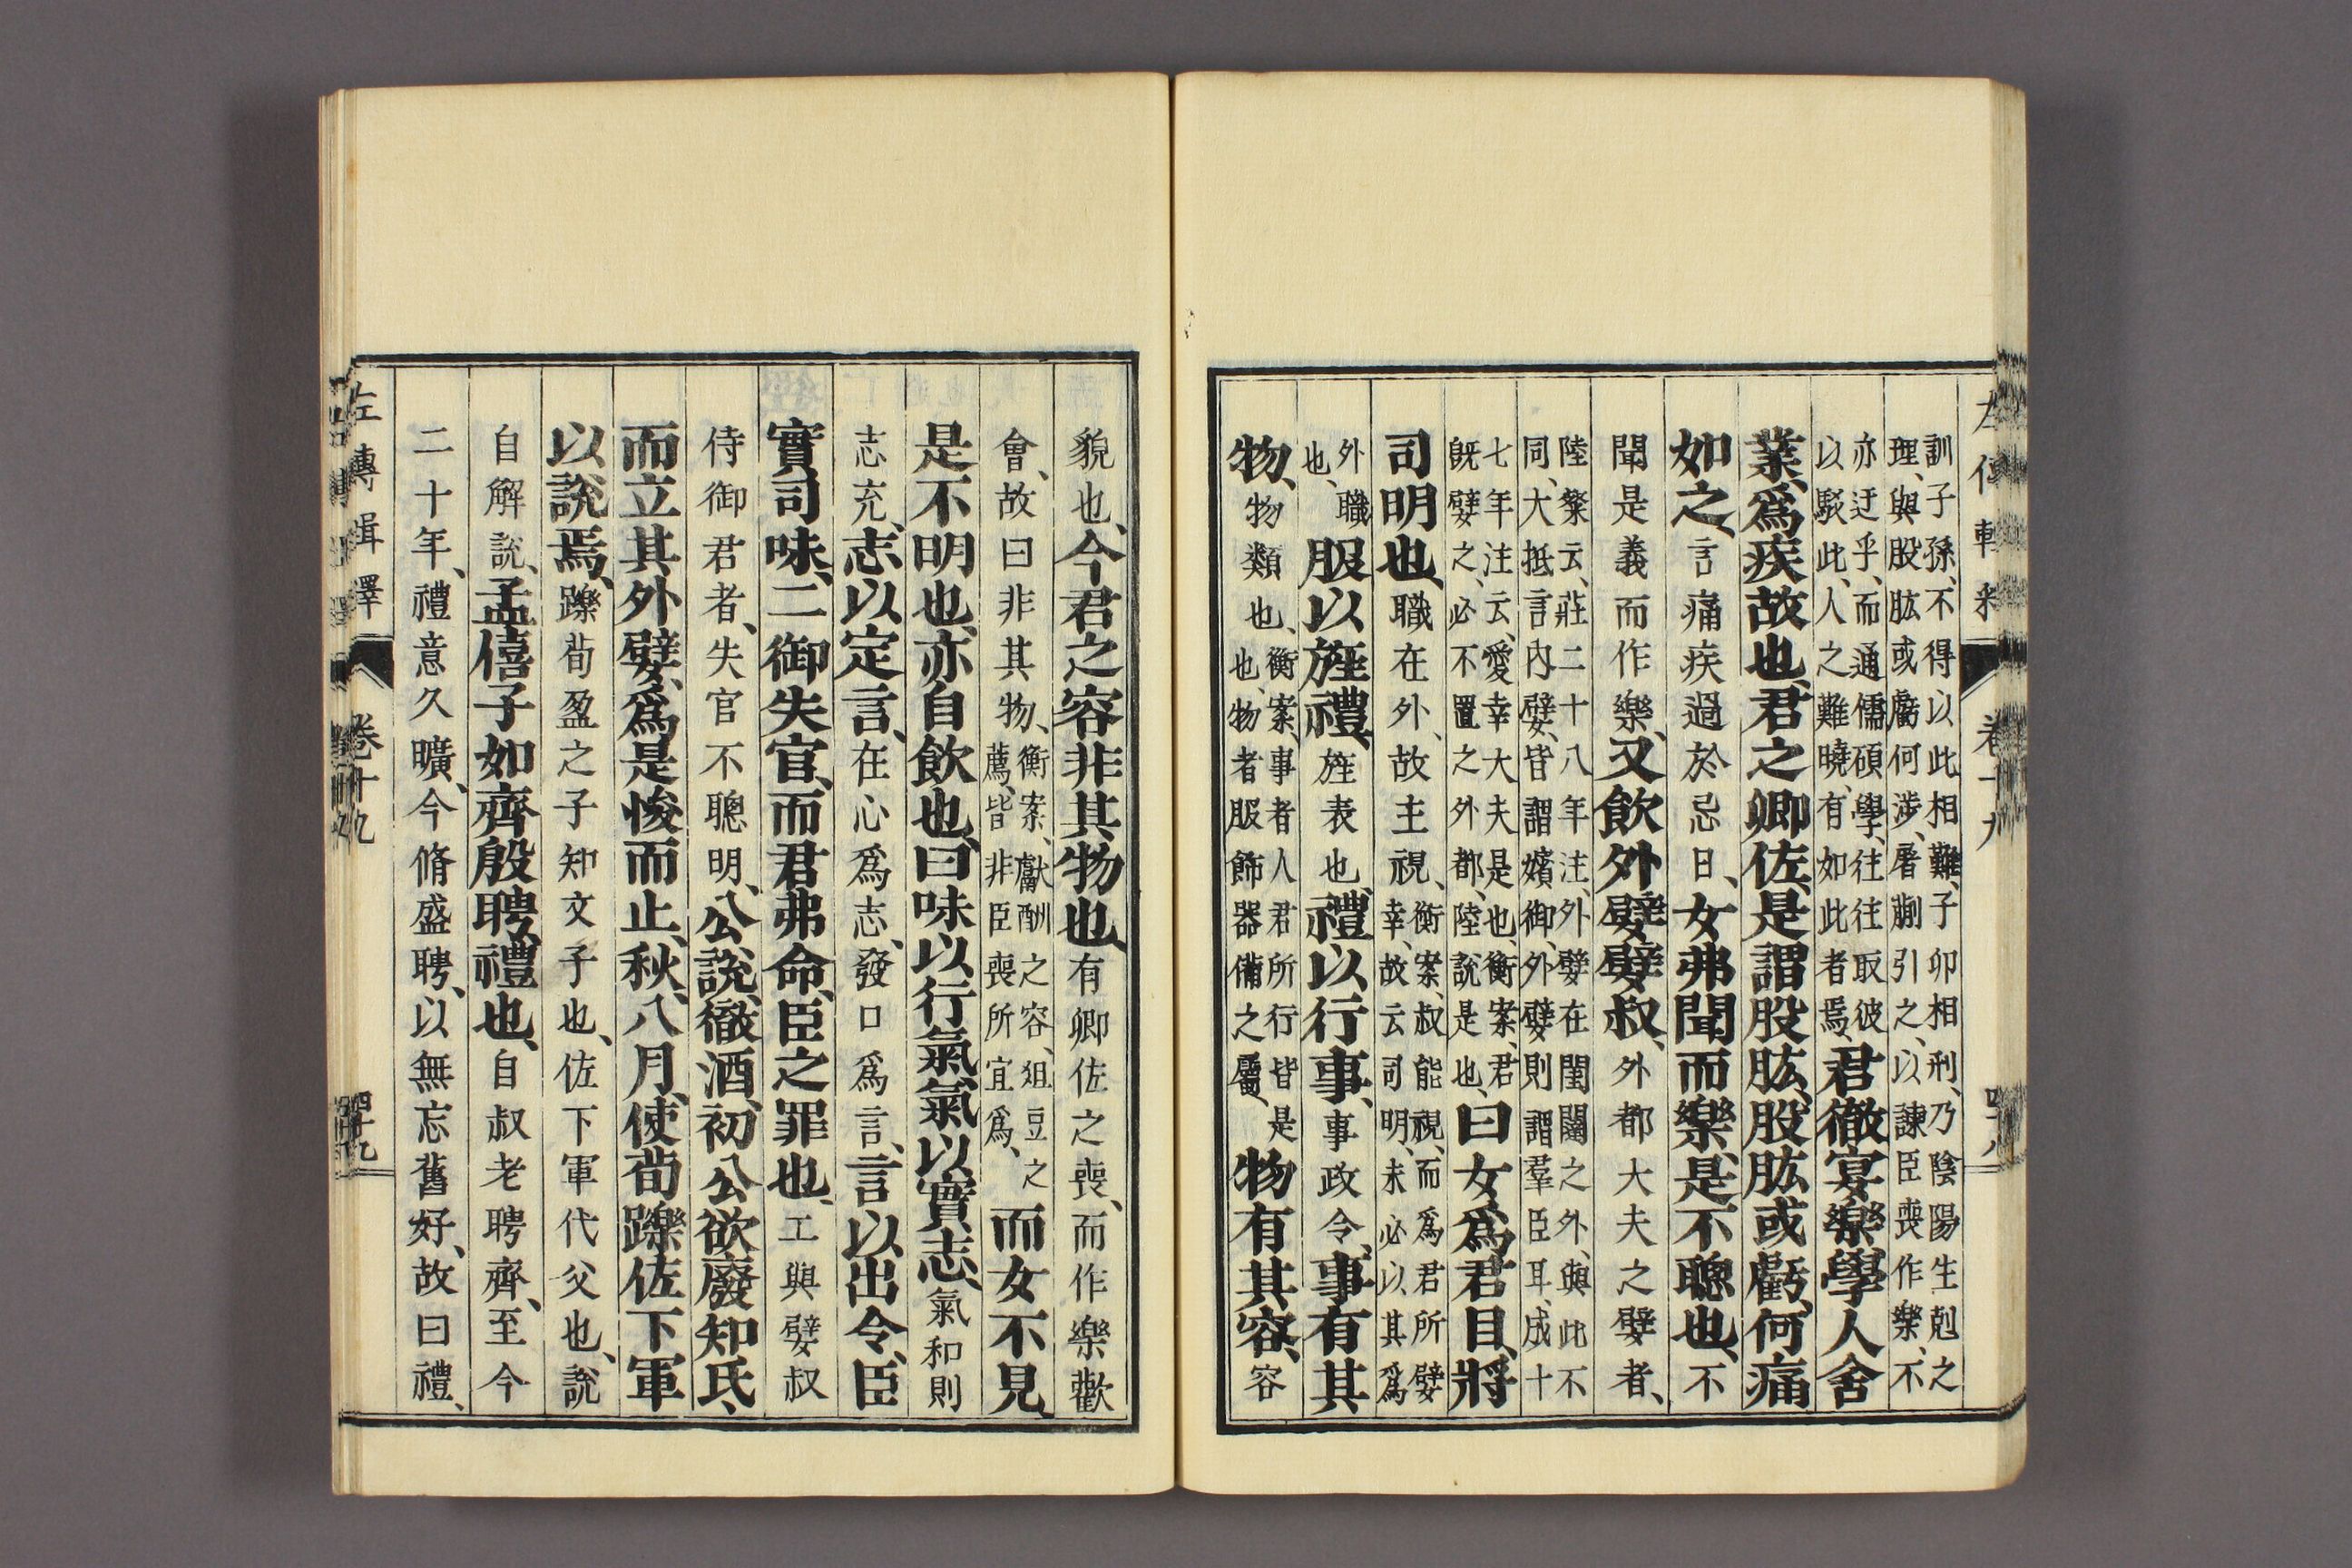 訓子孫、不得以此相難、子卯相刑、乃陰陽生剋之
理、與股肱或虧何涉、屠蒯引之、以諫臣喪作樂、不
亦迂乎、而通儒碩學、往往取彼
以駁此、人之難曉、有如此者焉、君徹宴樂學人舍
業、爲疾故也、君之卿佐、是謂股肱、股肱或虧、何痛
如之、言痛疾過於忌日、女弗聞而樂、是不聰也、不
聞是義而作樂、又飲外嬖嬖叔、外都大夫之嬖者、
陸粲云、莊二十八年注、外嬖在閨闥之外、與此不
同、大抵言內嬖、皆謂嬪御、外嬖則謂羣臣耳、成十
七年注云、愛幸大夫是也、衡案、君
旣嬖之、必不置之外都、陸說是也、曰女爲君目、將
司明也、職在外、故主視、衡案、叔能視、而爲君所嬖
幸、故云司明、未必以其爲
外職
也、服以旌禮、旌表也、禮以行事、事政令、事有其
物、物類也、衡案、事者人君所行皆是
也、物者服飾器備之屬、物有其容、容
左傳輯釋 卷十九 四十八
貌也、今君之容非其物也、有卿佐之喪、而作樂歡
會、故曰非其物、衡案、獻酬之容、俎豆之
薦、皆非臣喪所宜爲、而女不見、
是不明也、亦自飲也、曰味以行氣、氣以實志、氣和則
志充、志以定言、在心爲志、發口爲言、言以出令、臣
實司味、二御失官、而君弗命、臣之罪也、工與嬖叔
侍御君者、失官不聰明、公說、徹酒、初公欲廢知氏、
而立其外嬖、爲是悛而止、秋、八月、使荀躒佐下軍
以說焉、躒荀盈之子知文子也、佐下軍代父也、說
自解說、孟僖子如齊殷聘、禮也、自叔老聘齊、至今
二十年、禮意久曠、今脩盛聘、以無忘舊好、故曰禮、
左傳輯釋 卷十九 四十九